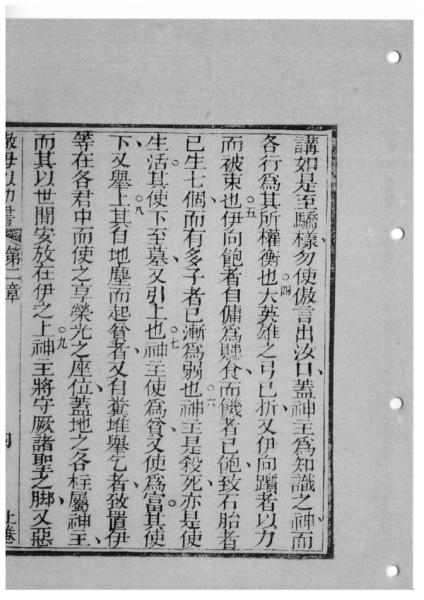 講如是至驕樣勿使傲言出汝口蓋神主為知識之神而
各行為其所權衡也四大英雄之弓已折又伊向躓者以力
而被束也五伊向飽者自傭為賺食而饑者已飽致石胎者
已生七個而有多子者已漸為弱也六神主是殺死亦是使
生活其使下至墓又引上也七神主使為貧又使為富其使
下又舉上八其自地塵而起貧者又自糞堆舉乞者致置伊
等在各君中而使之享榮光之座位蓋地之各柱屬神主
而其以世間安放在伊之上九神主將守厥諸聖之脚又惡
撒母以勿書 第二章 上卷